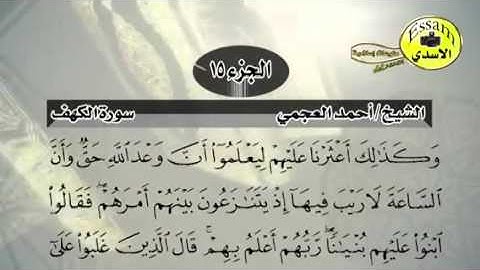 Essam
الأسدي
الجزء ١٥
الشيخ/أحمد العجمي
سورة الكهف
وَكَذَٰلِكَ أَعْثَرْنَا عَلَيْهِمْ لِيَعْلَمُوٓا۟ أَنَّ وَعْدَ ٱللَّهِ حَقٌّ وَأَنَّ
ٱلسَّاعَةَ لَا رَيْبَ فِيهَآ إِذْ يَتَنَٰزَعُونَ بَيْنَهُمْ أَمْرَهُمْ ۖ فَقَالُوا۟
ٱبْنُوا۟ عَلَيْهِم بُنْيَٰنًا ۖ رَّبُّهُمْ أَعْلَمُ بِهِمْ ۚ قَالَ ٱلَّذِينَ غَلَبُوا۟ عَلَىٰٓ